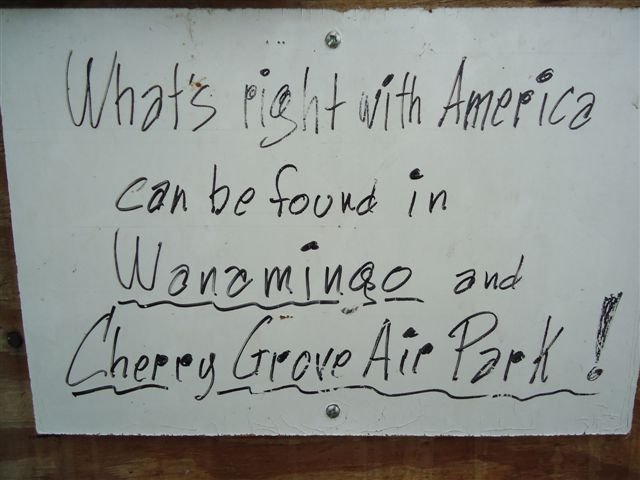 What's right with America
can be found in
Wanamingo and
Cherry Grove Air Park!